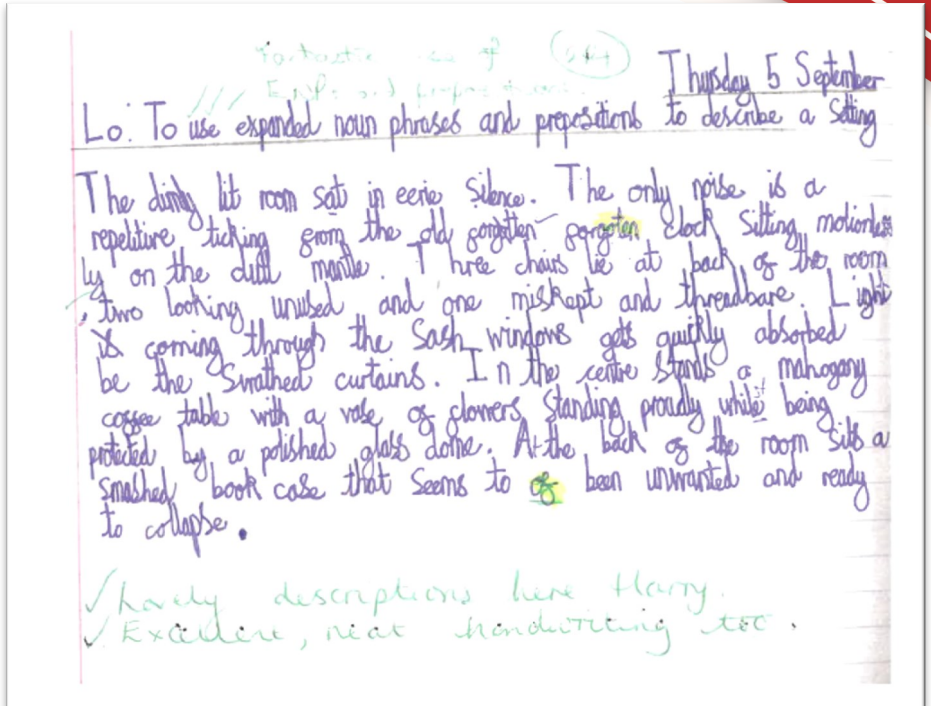 fantastic use of
ENPs and prepositions.
Thursday 5 September
Lo: To use expanded noun phrases and prepositions to describe a setting
The dimly lit room sat in eerie silence. The only noise is a
repetitive ticking from the old forgotten forgoten clock sitting motionless
ly on the dull mantle. Three chairs lie at back of the room
, two looking unused and one miskept and threadbare. Light
is coming through the sash windows gets quickly absorbed
be the swathed curtains. In the centre stands a mahogany
coffee table with a vase of flowers standing proudly while being
protected by a polished glass dome. At the back of the room sits a
smashed book case that seems to of been unwanted and ready
to collapse.
Lovely descriptions here Harry.
Excellent, neat handwriting too.